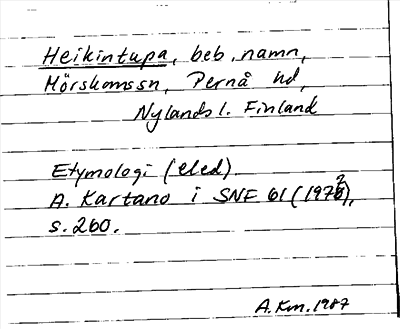 Heikintupa, beb. namn,
Mörskomssn, Pernå hd,
Nylands l. Finland
Etymologi (eled)
A. Kartano i SNF 61 (1973),
s. 260.
A.Km. 1987